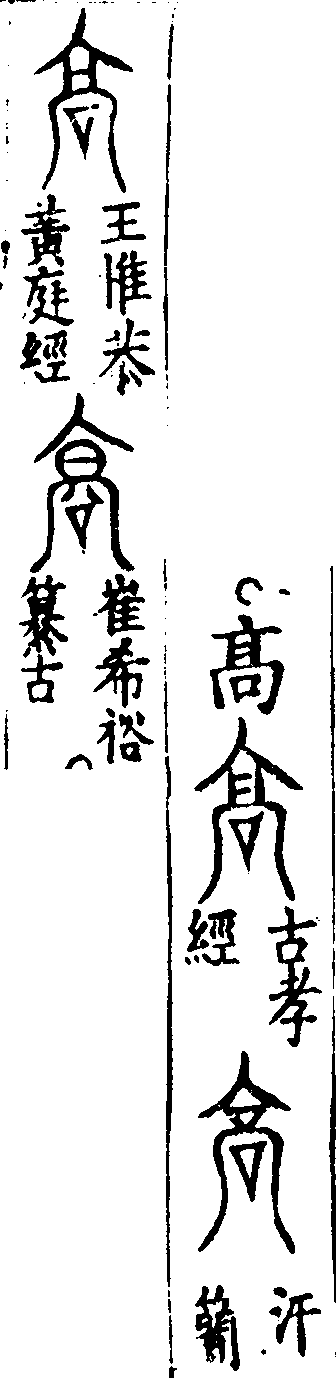 髙
古孝
經
汗
簡
王惟恭
黃庭經
崔希裕
纂古